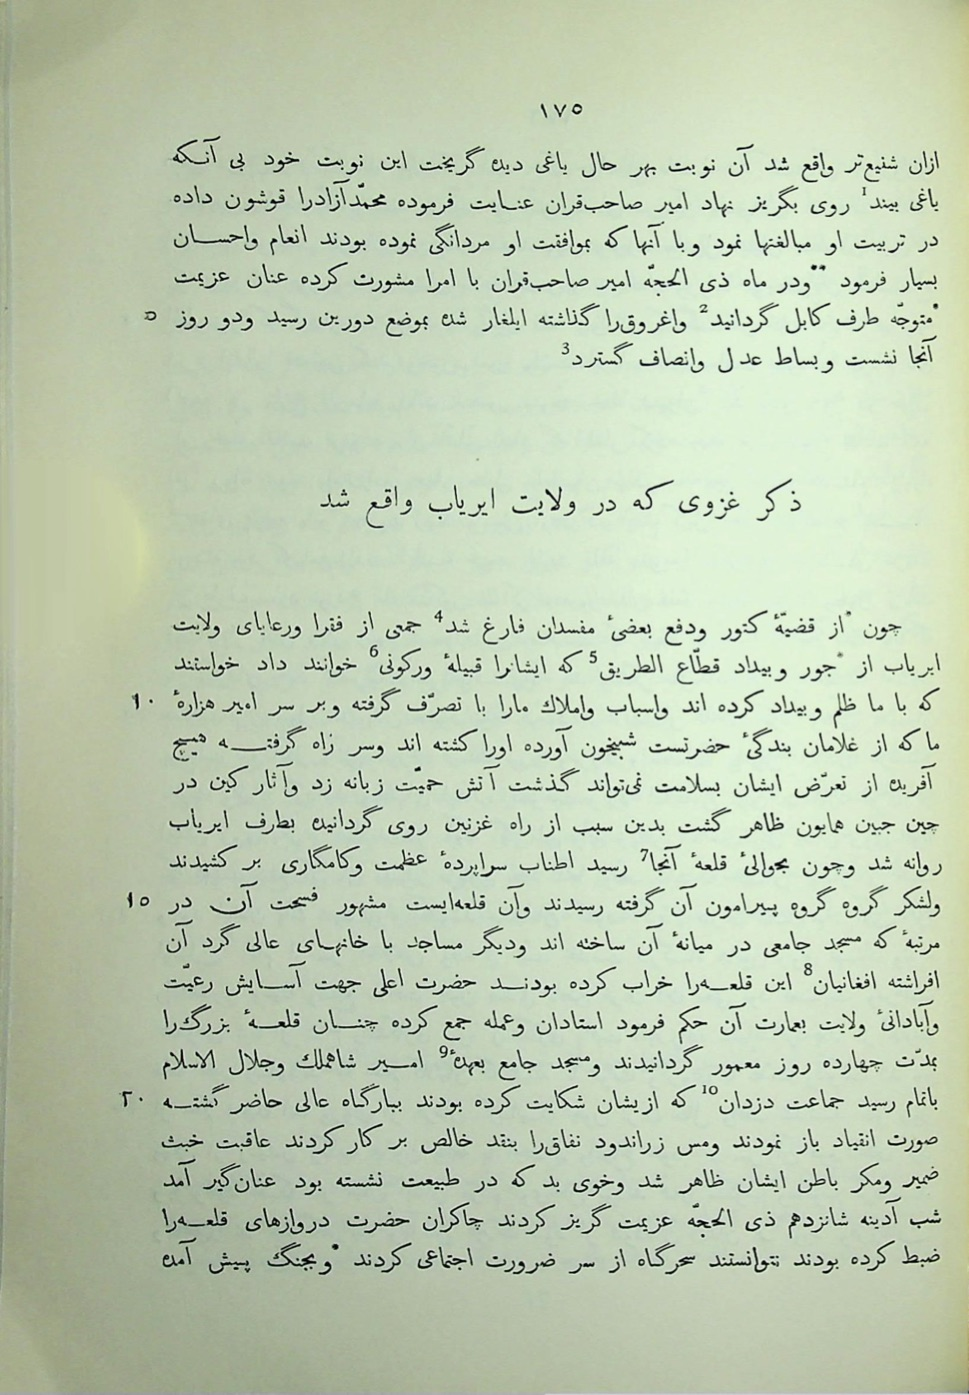 ١٧٥
ازان شنیع‌تر واقع شد آن نوبت بهر حال یاغی دیده گریخت این نوبت خود بی آنکه
یاغی بیند1 روی بگریز نهاد امیر صاحب‌قران عنایت فرموده محمّدآزادرا قوشون داده
در تربیت او مبالغتها نمود وبا آنها که بموافقت او مردانگی نموده بودند انعام واحسان
بسیار فرمود **ودر ماه ذی الحجّه امیر صاحب‌قران با امرا مشورت کرده عنان عزیمت
*متوجّه طرف کابل گردانید2 واغروق‌را گذاشته ایلغار شده بموضع دورین رسید ودو روز ٥
آنجا نشست وبساط عدل وانصاف گسترد3
ذکر غزوی که در ولایت ایریاب واقع شد
چون *از قضیّهٔ کتور ودفع بعضیٔ مفسدان فارغ شد4 جمعی از فقرا ورعایای ولایت
ایریاب از *جور وبیداد قطّاع الطریق5 که ایشانرا قبیلهٔ ورکونی6 خوانند داد خواستند
که با ما ظلم وبیداد کرده اند واسباب واملاک مارا با تصرّف گرفته وبر سر امیر هزارهٔ ١٠
ما که از غلامان بندگیٔ حضرتست شبیخون آورده اورا کشته اند وسر راه گرفته هیچ
آفریده از تعرّض ایشان بسلامت نمی‌تواند گذشت آتش حمیّت زبانه زد وآثار کین در
چین جبین همایون ظاهر گشت بدین سبب از راه غزنین روی گردانیده بطرف ایریاب
روانه شد وچون بحوالیٔ قلعهٔ آنجا7 رسید اطناب سراپردهٔ عظمت وکامگاری بر کشیدند
ولشکر گروه گروه پیرامون آن گرفته رسیدند وآن قلعه‌ایست مشهور فسحت آن در ١٥
مرتبهٔ که مسجد جامعی در میانهٔ آن ساخته اند ودیگر مساجد با خانهای عالی گرد آن
افراشته افغانیان8 این قلعه‌را خراب کرده بودند حضرت اعلی جهت آسایش رعیّت
وآبادانیٔ ولایت بعمارت آن حکم فرمود استادان وعمله جمع کرده چنان قلعهٔ بزرگ‌را
بمدّت چهارده روز معمور گردانیدند ومسجد جامع بعهدهٔ9 امیر شاهملک وجلال الاسلام
باتمام رسید جماعت دزدان10 که ازیشان شکایت کرده بودند ببارگاه عالی حاضر گشته ٢٠
صورت انقیاد باز نمودند ومس زراندود نفاق‌را بنقد خالص بر کار کردند عاقبت خبث
ضمیر ومکر باطن ایشان ظاهر شد وخوی بد که در طبیعت نشسته بود عنان‌گیر آمد
شب آدینه شانزدهم ذی الحجّه عزیمت گریز کردند چاکران حضرت دروازهای قلعه‌را
ضبط کرده بودند نتوانستند سحرگاه از سر ضرورت اجتماعی کردند *وبجنگ پیش آمده